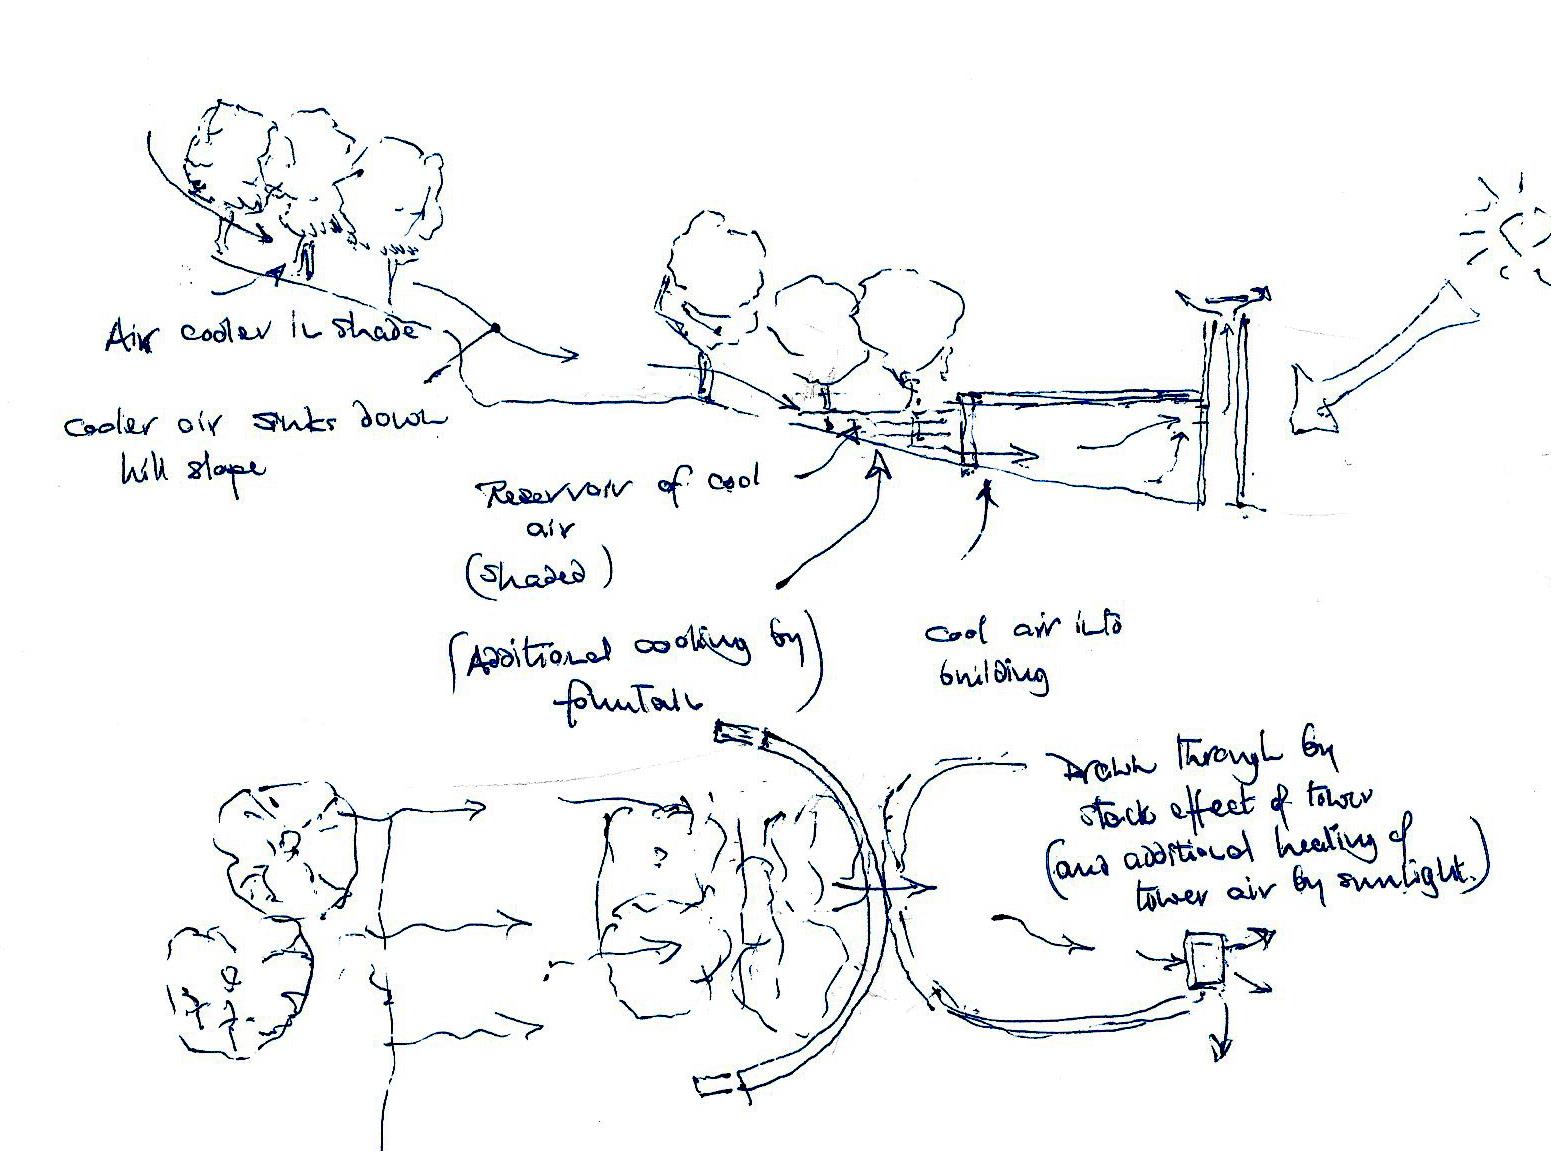 Air cooler in shade
cooler air sinks down
hill slope
Reservoir of cool
air
(shaded)
(Additional cooling by
fountain)
cool air into
building
Drawn through by
stack effect of tower
(and additional heating of
tower air by sunlight.)